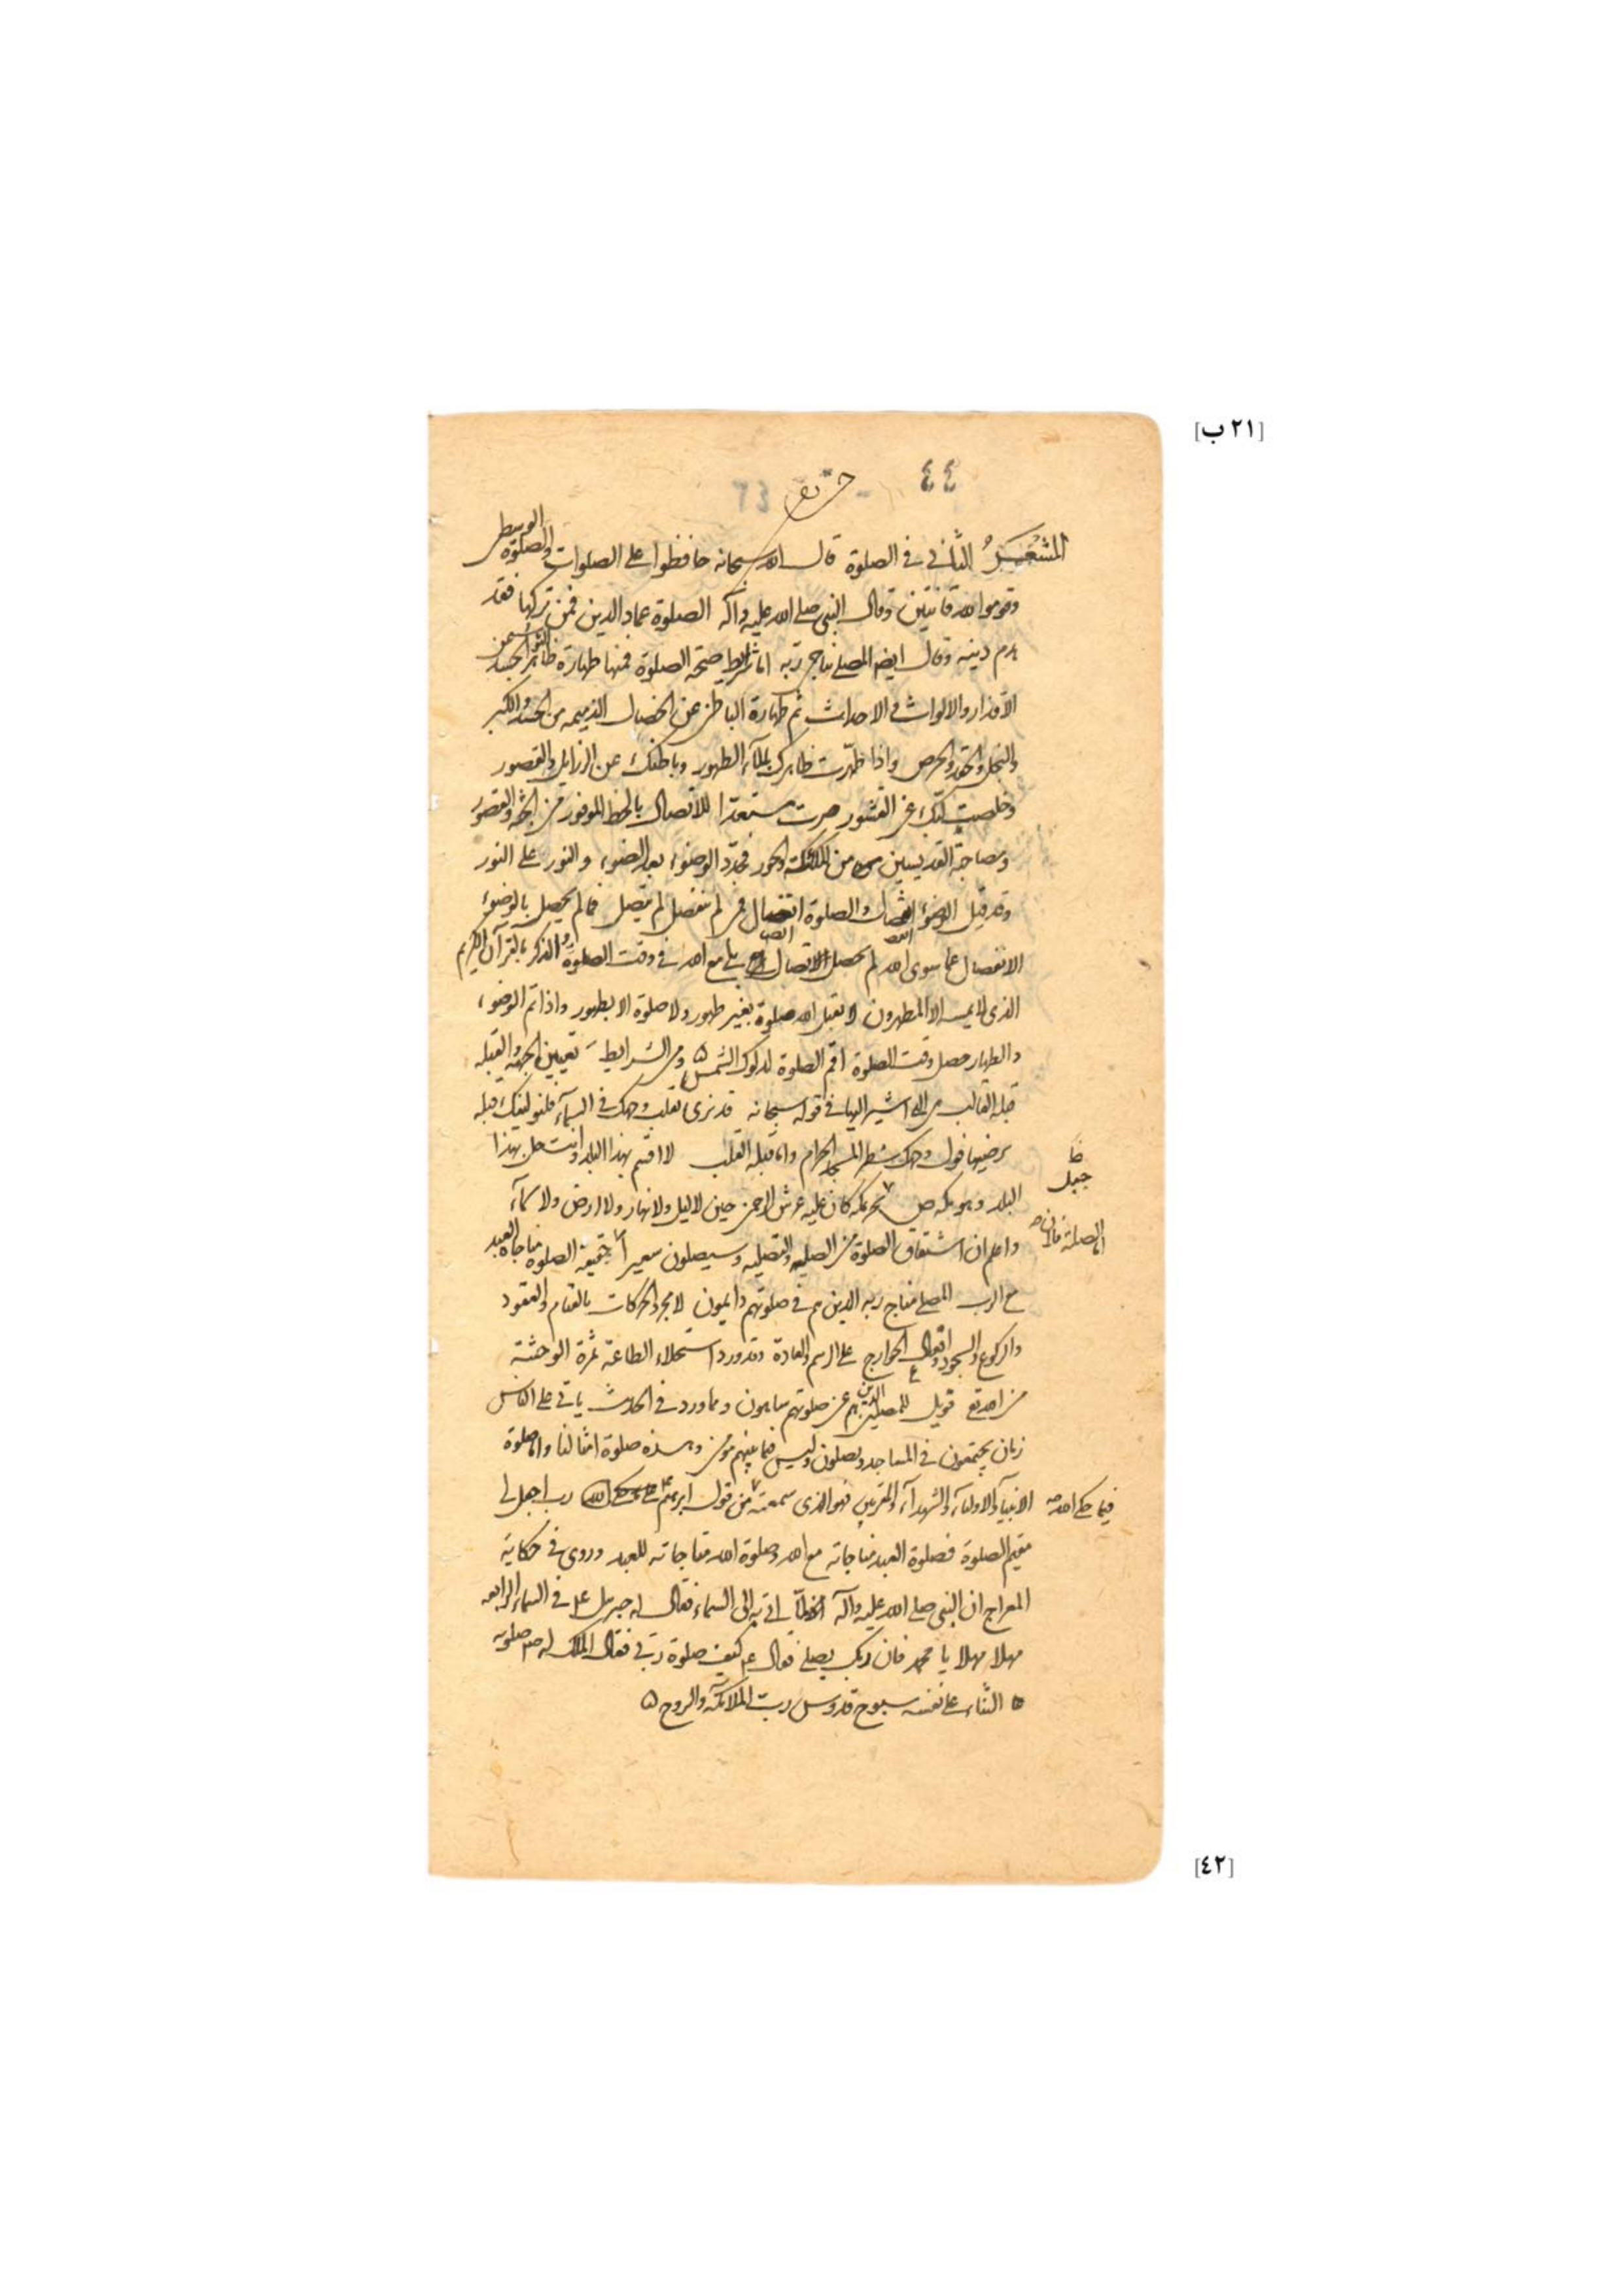 [٢١ ب]
٤٤
المشعر الثاني في الصلوة قال الله سبحانه حافظوا على الصلوات والصلوة الوسطى
وقوموا لله قانتين وقال النبي صلى الله عليه وآله الصلوة عماد الدين فمن تركها فقد
هدم دينه وقال ايضا المصلي يناجي ربه اما شرايط صحة الصلوة فمنها طهارة ظاهر الجسد عن
الاقذار والالواث والاحداث ثم طهارة الباطن عن الخصال الذميمه من الحسد والكبر
والبخل والحقد والحرص واذا طهرت ظاهرك بالمآء الطهور وباطنك عن الرذايل والقصور
وخلصت لبك عن القشور صرت مستعدا للاتصال بالحظ الموفور من الجنة والقصور
ومصاحبة القديسين من الملائكة والحور فجدد الوضوء بعد الوضوء والنور على النور
وقد قيل الوضوء انفصال والصلوة اتصال فمن لم ينفصل لم يتصل فما لم يحصل بالوضوء
الانفصال عما سوى الله لم يحصل الاتصال مع الله في وقت الصلوة والذكر بالقرآن الكريم
الذي لا يمسه الا المطهرون لا يقبل الله صلوة بغير طهور ولا صلوة الا بطهور واذا تم الوضوء
والطهار حصل وقت الصلوة اقم الصلوة لدلوك الشمس ومن الشرايط تعيين الجهة والقبلة
قبلة القالب هي التي اشير اليها في قوله سبحانه قد نرى تقلب وجهك في السمآء فلنولينك قبلة
ترضيها فول وجهك شطر المسجد الحرام واما قبلة القلب لا اقسم بهذا البلد وانت حل بهذا
جبل
البلد وهو بمكة كان عليه عرش الرحمن حين لا ليل ولا نهار ولا ارض ولا سمآء
واعلم ان اشتقاق الصلوة من الصلية والتصلية وسيصلون سعيرا حقيقة الصلوة مناجاة العبد
مع الرب المصلي مناج ربه الذين هم في صلوتهم دايمون لا مجرد الحركات بالقيام والقعود
والركوع والسجود وافعال الجوارح على الرسم والعادة وقد ورد استحلاء الطاعة ثمرة الوحشة
من الله تع فويل للمصلين الذين هم عن صلوتهم ساهون ومما ورد في الحديث ياتي على الناس
زمان يجتمعون في المساجد ويصلون وليس فيما بينهم مؤمن وهذه صلوة امثالنا واما صلوة
الانبيآء والاوليآء والشهدآء والمقربين فهو الذي سمعته من قول ابرهيم ع رب اجعلني
فيما حكى الله
مقيم الصلوة فصلوة العبد مناجاته مع الله وصلوة الله مناجاته للعبد وروى في حكاية
المعراج ان النبي صلى الله عليه وآله لما اتي به الى السماء فقال له جبرئيل ع في السماء الرابعه
مهلا مهلا يا محمد فان ربك يصلي فقال ع كيف صلوة ربي فقال الملك له صلوته
الثناء على نفسه سبوح قدوس رب الملائكة والروح
[٤٢]